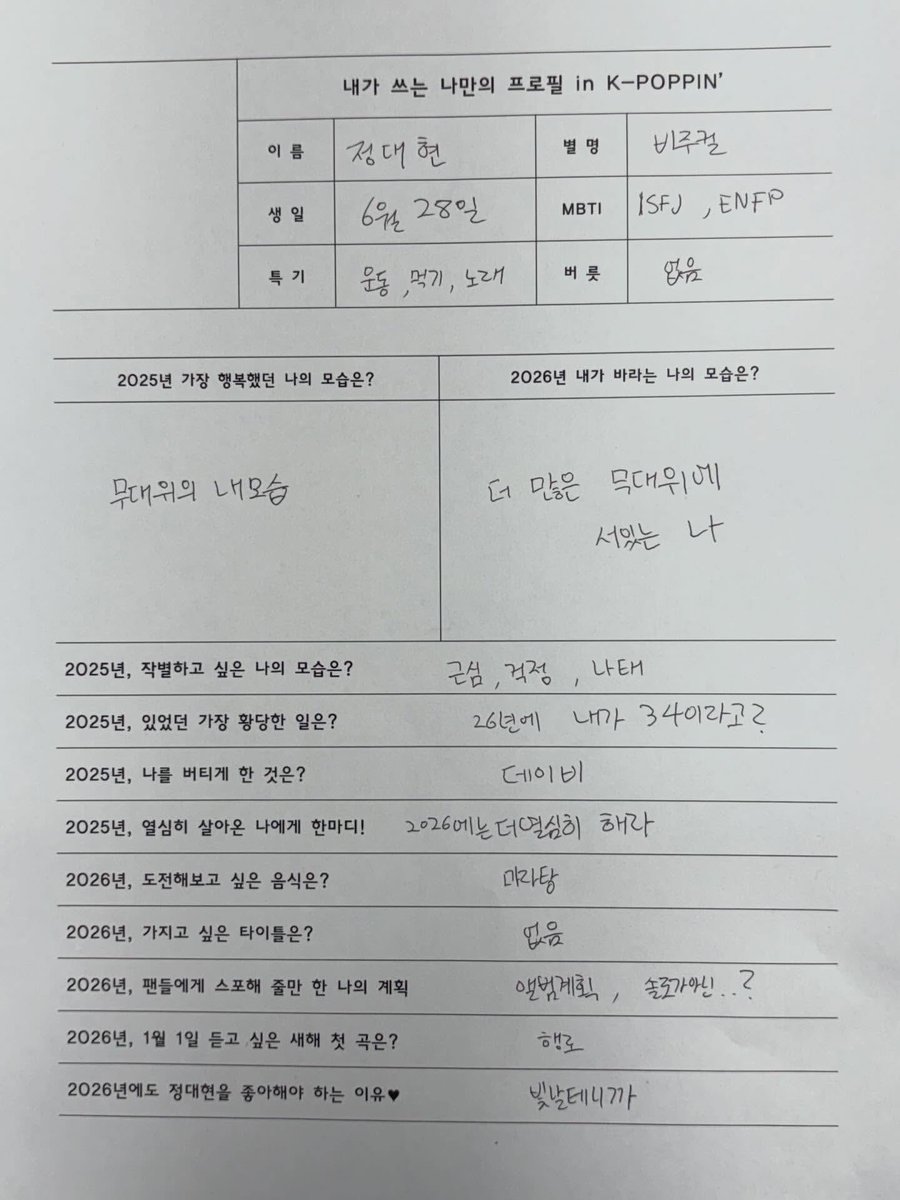 내가 쓰는 나만의 프로필 in K-POPPIN'
이름 정대현 별명 비주컬
생일 6월 28일 MBTI ISFJ , ENFP
특기 운동 , 먹기, 노래 버릇 없음
2025년 가장 행복했던 나의 모습은? 2026년 내가 바라는 나의 모습은?
무대위의 내모습
더 많은 무대위에
서있는 나
2025년, 작별하고 싶은 나의 모습은? 근심 , 걱정 , 나태
2025년, 있었던 가장 황당한 일은? 26년에 내가 34이라고?
2025년, 나를 버티게 한 것은? 데이비
2025년, 열심히 살아온 나에게 한마디! 2026에는 더 열심히 해라
2026년, 도전해보고 싶은 음식은? 마라탕
2026년, 가지고 싶은 타이틀은? 없음
2026년, 팬들에게 스포해 줄만 한 나의 계획 앨범계획 , 솔로가아닌..?
2026년, 1월 1일 듣고 싶은 새해 첫 곡은? 행로
2026년에도 정대현을 좋아해야 하는 이유♥ 빛날테니까